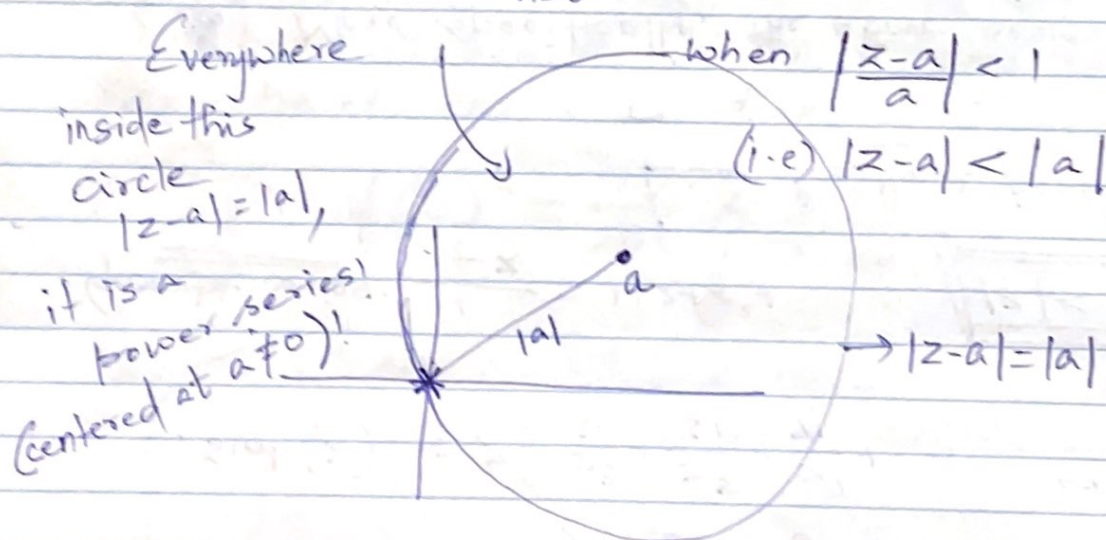 Everywhere
inside this
circle
|z-a|=|a|,
it is a
power series!
(centered at a≠0)!
when |z-a/a| < 1
(i.e) |z-a| < |a|
a
|a|
→ |z-a|=|a|